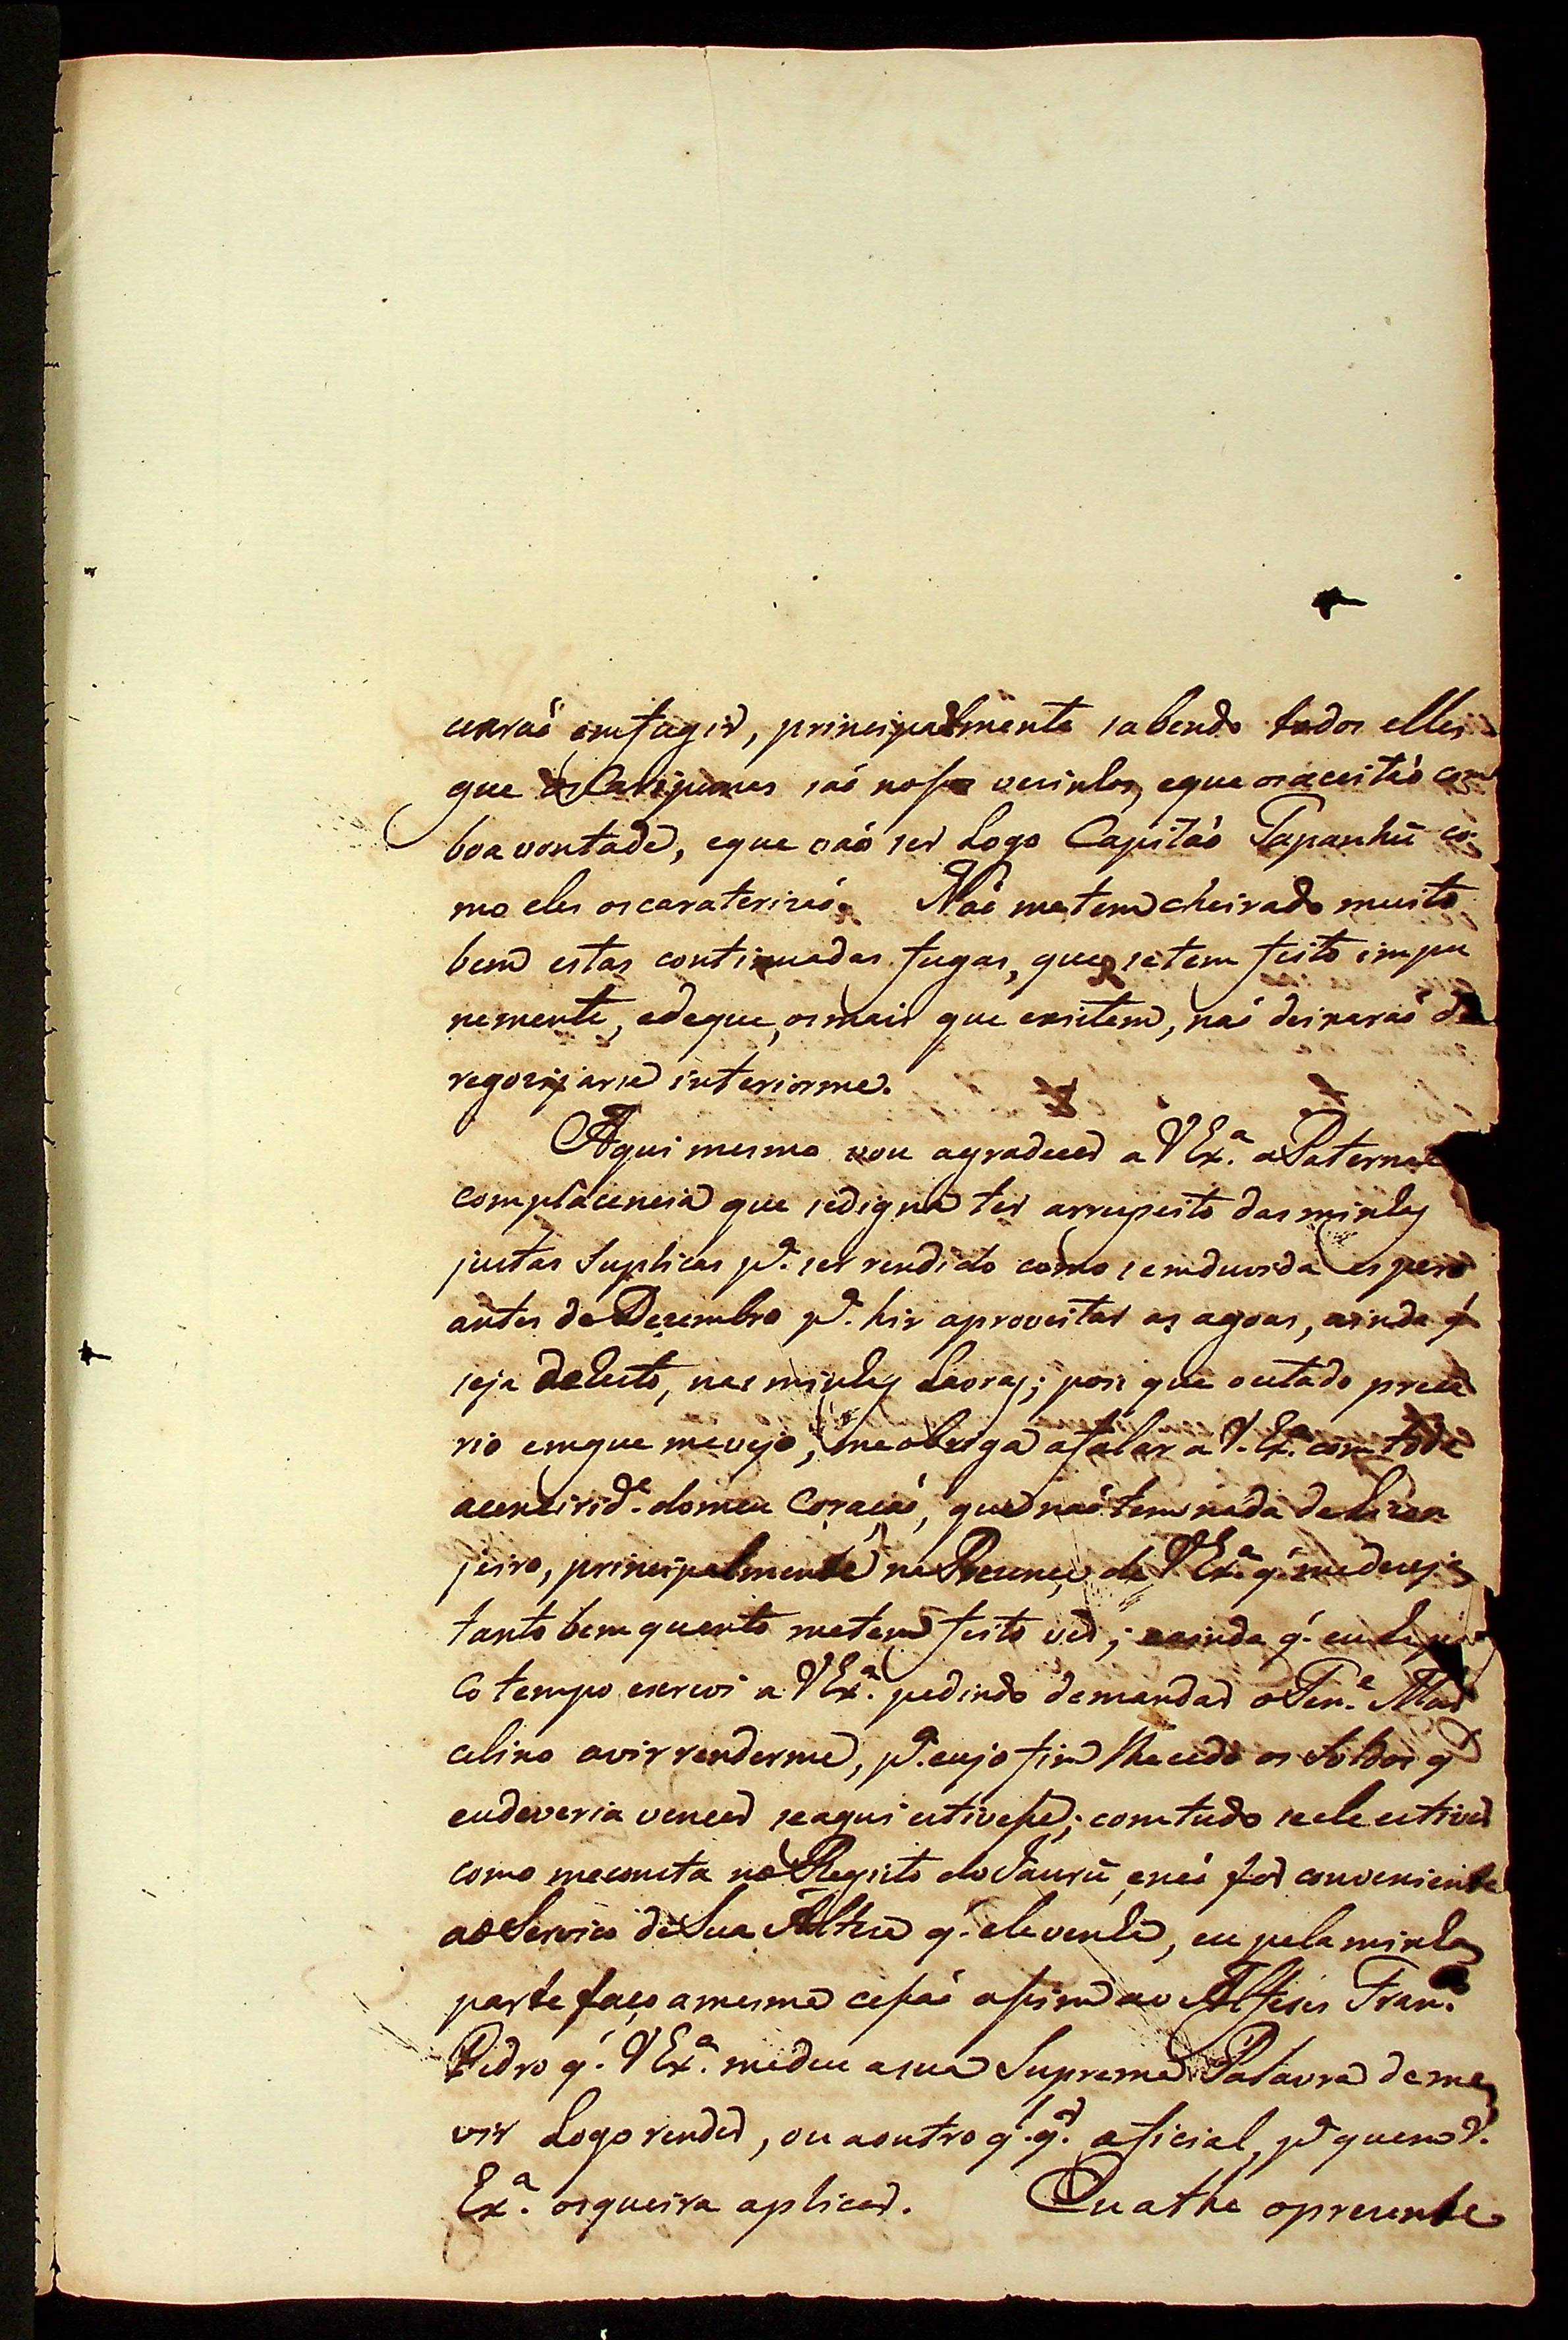 cerraõ emfugir, principalmente sabendo todos elles
que os Caripunas saõ nossos vesinhos, eque osaceitaõ com
boa vontade, eque vaõ ser Logo Capitaõ Tapanhú co-
mo eles oscaraterizaõ. Naõ metem cheirado muito
bem estas continuadas fugas, que setem feito impu
nemente, edeque, osmais que existem, naõ deixaraõ de
regozijarse interiorme.
Aqui mesmo vou agradecer a VExª. a Paternal
complacencia que sedigna ter arrespeito das minhas
justas Suplicas pª. ser rendido como semduvida espero
antes de Dezembro pª. hir aproveitar as agoas, ainda q'
seja de luto, nas minhas Lavras; pois que oestado preca
rio emque mevejo, meobriga afalar a V.Exª. com toda
acenciridᵉ. domeu Coraçaõ, que naõ tem nada de Lizon
jeiro, principalmente na Prezença de VExª. q' medeseja
tanto bem quanto metem feito ver; eainda q' eu há pou
co tempo escrevi a VExª. pedindo demandar o Tenᵉ. Mar
celino avir renderme, pª. cujo fim lhecedo os Soldos q'
eudeveria vencer seaqui estivesse; comtudo seele estiver
como meconsta no Registo do Jaurú, enaõ for conveniente
aoServiço de Sua Alteza q' elevenha, eu pela minha
parte faço amesma cessaõ assim ao Alferes Franᶜᵒ.
Pedro q' VExª. medeu asua Suprema Palavra deme
vir Logo render, ou aoutro q'.q'ʳ. oficial, pª quem V.
Exª. osqueira aplicar. Quathe opresente